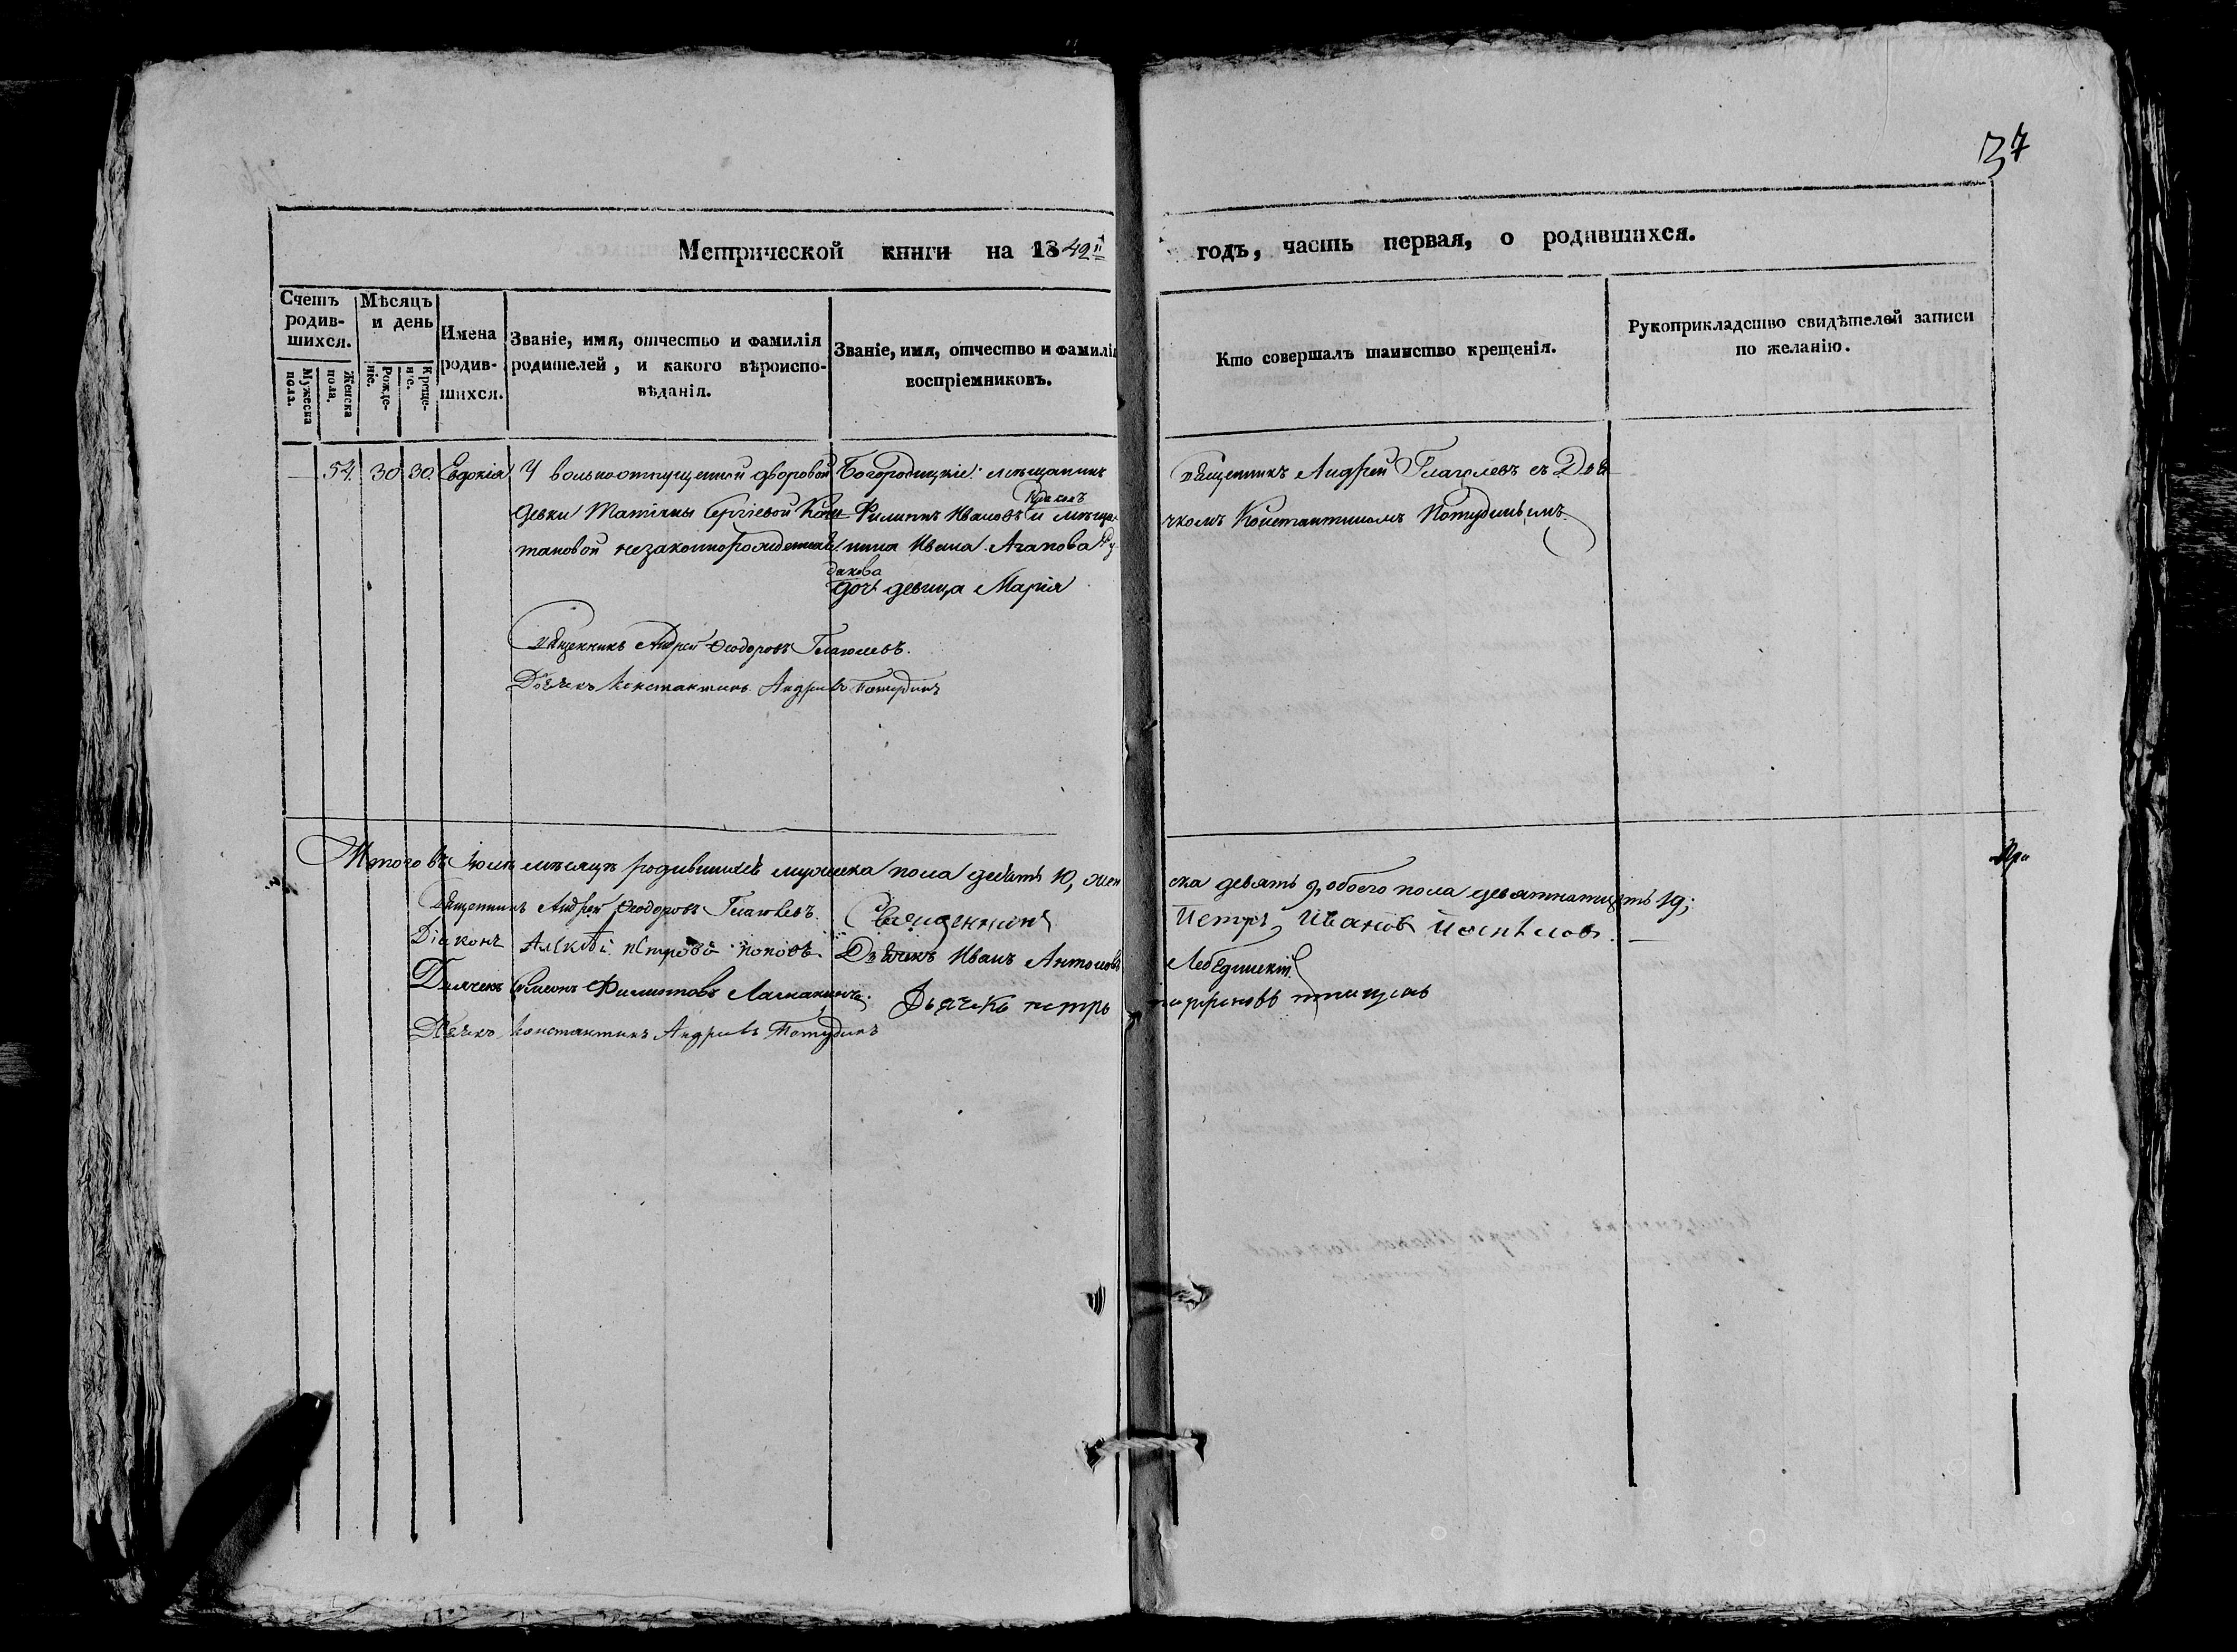 37
Метрической книги на 1849й годъ, часть первая, о родившихся.
Счетъ родившихся.
Мужеска пола.
Женска пола.
Мѣсяцъ и день
Рожденіе.
Крещеніе.
Имена родившихся.
Званіе, имя, отчество и фамилія родителей, и какого вѣроисповѣданія.
Званіе, имя, отчество и фамилія воспріемниковъ.
Кто совершалъ таинство крещенія.
Рукоприкладство свидѣтелей записи по желанію.
54. 30 30. Евдокія
У вольноотпущенной дворовой
девки Татіяны Сергіевой
тановой незаконнорожденная
Богородицкіе: мѣщанинъ
Филиппъ Ивановъ и мѣща-
нина Ивана Агапова Ру-
дакова
дочь девица Марія
Священникъ Андрей Глаголевъ съ Дья-
чкомъ Константиномъ Потудинымъ.
Священникъ Андрей Феодоровъ Глаголевъ.
Дьячекъ Константинъ Андреевъ Потудинъ
Итого въ Іюлѣ мѣсяцѣ родившихся мужеска пола десять 10, жен
ска девять 9, обоего пола девятнатцать 19;
Священникъ Андрей Феодоровъ Глаголевъ.
Священникъ Петръ Ивановъ Поспѣловъ.
Діаконъ Алексѣй Петровъ Поповъ.
Дьячекъ Иванъ Антоновъ Лебединскій
Дьячекъ Симеонъ Филипповъ
Дьячекъ петръ
Дьячекъ Константинъ Андреевъ Потудинъ